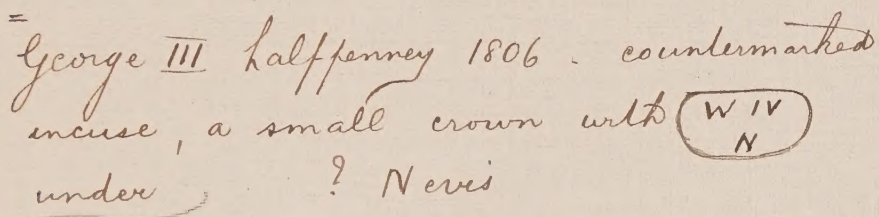 George III halfpenney 1806 . countermarked
incuse, a small crown with W IV
N
under ? Nevis